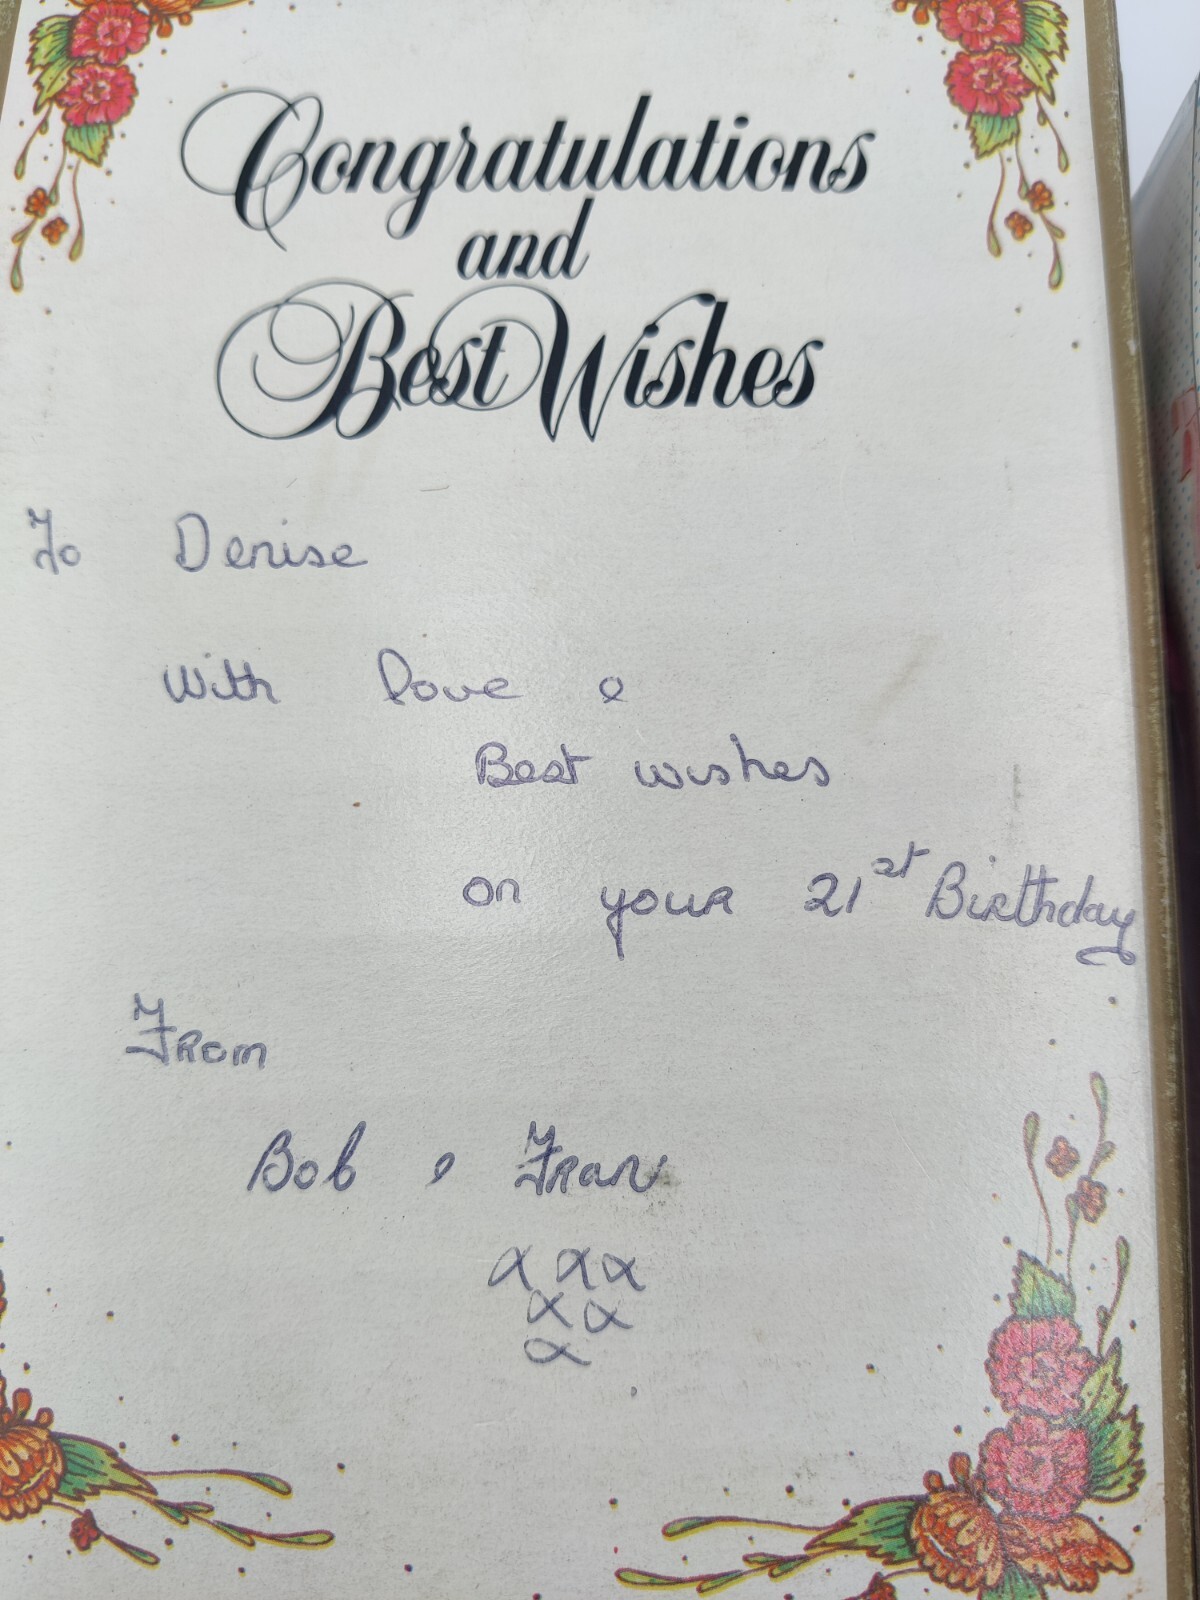 Congratulations
and
Best Wishes
To Denise
With love &
Best wishes
on your 21st Birthday
From
Bob & Fran
x x x
x x
x